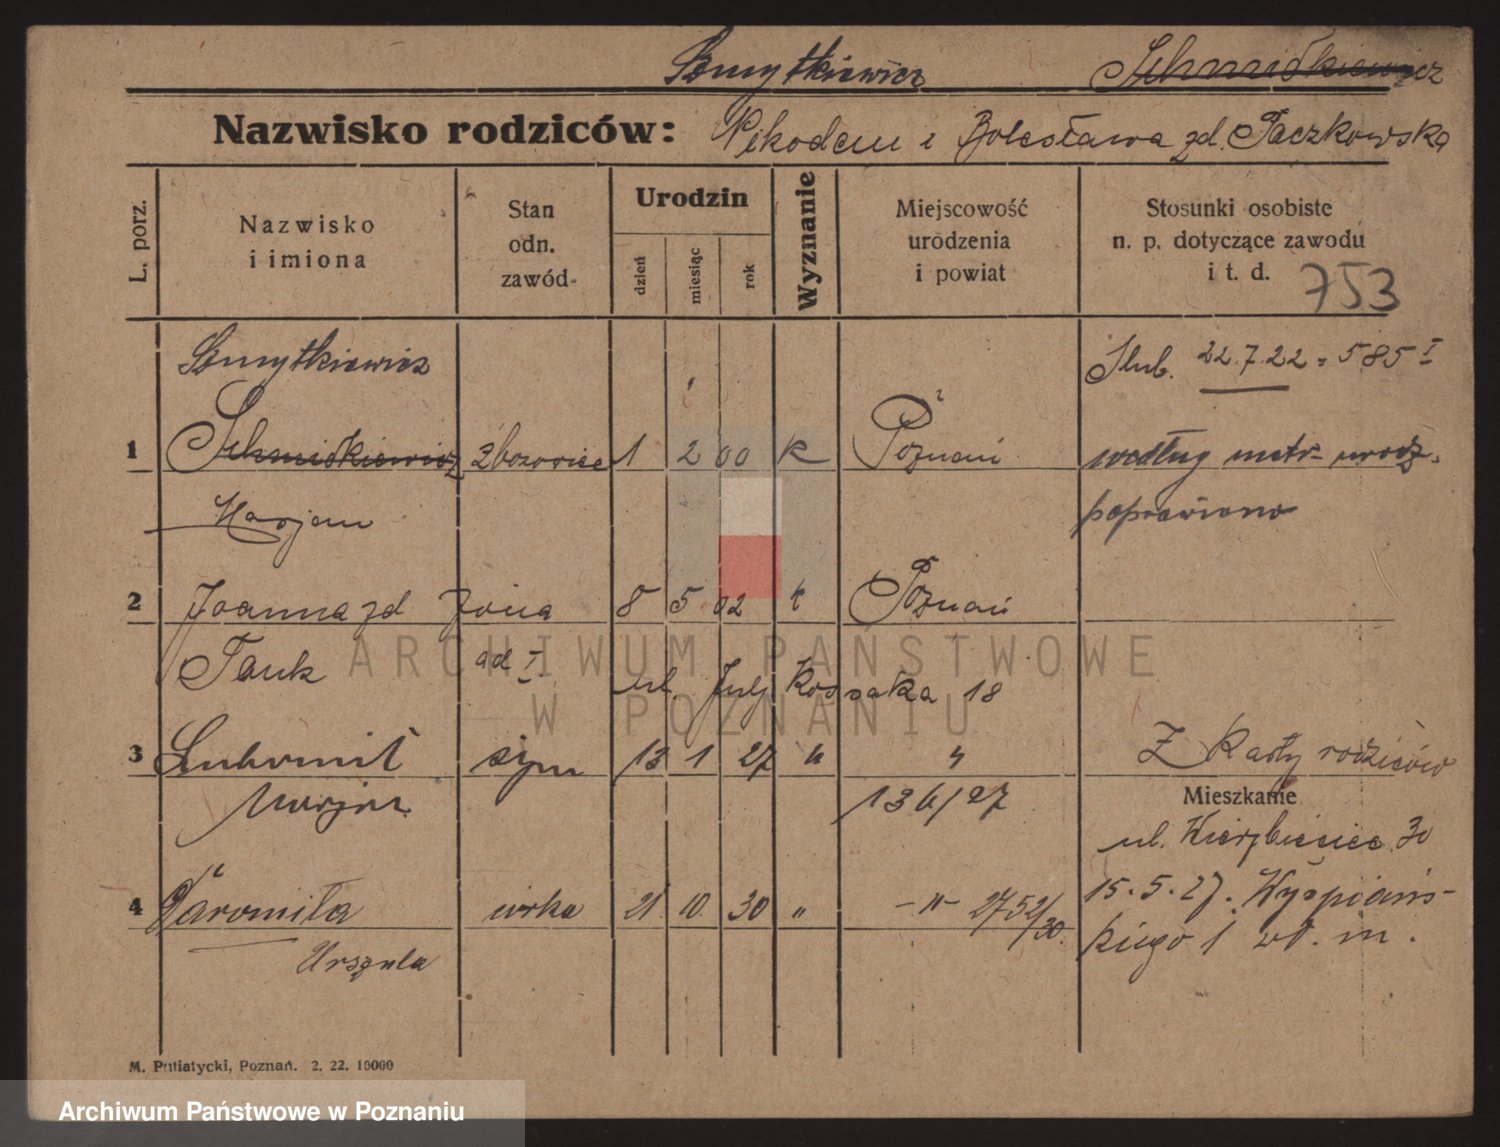 Szmytkiewicz Schmidkiewicz
Nazwisko rodziców: Nikodem i Bolesława zd. Paczkowska
L. porz.
Nazwisko
i imiona
Stan
odn.
zawód
Urodzin
dzień
miesiąc
rok
Wyznanie
Miejscowość
urodzenia
i powiat
Stosunki osobiste
n. p. dotyczące zawodu
i t. d. 753
Szmytkiewicz
Ślub. 22.7.22 = 585 I
1 Schmidkiewicz 1 2 00 k Poznań według metr. urodz.
Marjan poprawiono
2 Joanna zd żona 8 5 02 k Poznań
Pauk ad I ul. Julj Kossaka 18
3 Lubomił syn 13 1 27 " " Z karty rodziców
Marjan 136/27
Mieszkanie
ul. Wierzbięcice 30
4 Jaromiła córka 21 10. 30 " -"- 2752/30. 15.5.27. Wyspiańs-
kiego 1 wł. m.
Urszula
M. Putiatycki, Poznań. 2. 22. 10000
ARCHIWUM PAŃSTWOWE
W POZNANIU
Archiwum Państwowe w Poznaniu